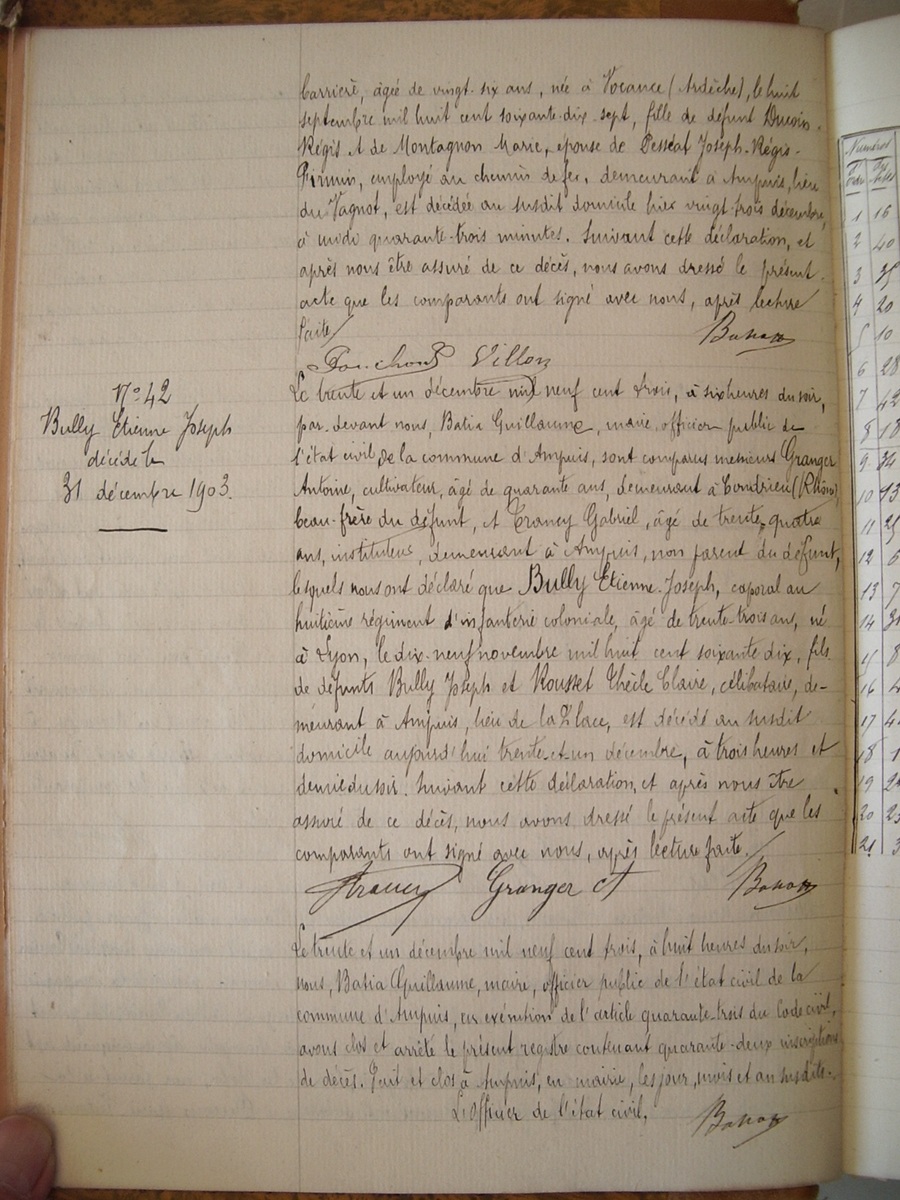 barrière, âgée de vingt-six ans, née à Vocance (Ardèche), le huit
septembre mil huit cent soixante-dix-sept, fille de défunt
Régis et de Montagnon Marie, épouse de Desséat Joseph-Régis-
Firmin, employé au chemin de fer, demeurant à Ampuis, lieu
du Vagnot, est décédée au susdit domicile hier vingt-trois décembre,
à midi quarante-trois minutes. Suivant cette déclaration, et
après nous être assuré de ce décès, nous avons dressé le présent
acte que les comparants ont signé avec nous, après lecture
faite
Villon
N° 42
Bully Etienne Joseph
décédé le
31 décembre 1903.
Le trente et un décembre mil neuf cent trois, à six heures du soir,
par-devant nous, Batia Guillaume, maire, officier public de
l'état civil de la commune d'Ampuis, sont comparus messieurs Granger
Antoine, cultivateur, âgé de quarante ans, demeurant à Condrieu (Rhône)
beau-frère du défunt, et Trancy Gabriel, âgé de trente-quatre
ans, instituteur, demeurant à Ampuis, non parent du défunt,
lesquels nous ont déclaré que Bully Etienne-Joseph, caporal au
huitième régiment d'infanterie coloniale, âgé de trente-trois ans, né
à Lyon, le dix-neuf novembre mil huit cent soixante dix, fils
de défunts Bully Joseph et Rousset Claire, célibataire, de-
meurant à Ampuis, lieu de la Place, est décédé au susdit
domicile aujourd'hui trente-et-un décembre, à trois heures et
demie du soir. Suivant cette déclaration, et après nous être
assuré de ce décès, nous avons dressé le présent acte que les
comparants ont signé avec nous, après lecture faite.
Trancy Granger At
Le trente et un décembre mil neuf cent trois, à huit heures du soir,
nous, Batia Guillaume, maire, officier public de l'état civil de la
commune d'Ampuis, en exécution de l'article quarante-trois du Code civil,
avons clos et arrêté le présent registre contenant quarante-deux inscriptions
de décès. Fait et clos à Ampuis, en mairie, les jour, mois et an susdits.
L'officier de l'état civil,
Numéros
1 16
2 40
3
4 20
5 10
6 28
7 42
8 18
9 34
10 13
11
12
13
14
15
16
17
18
19
20
21